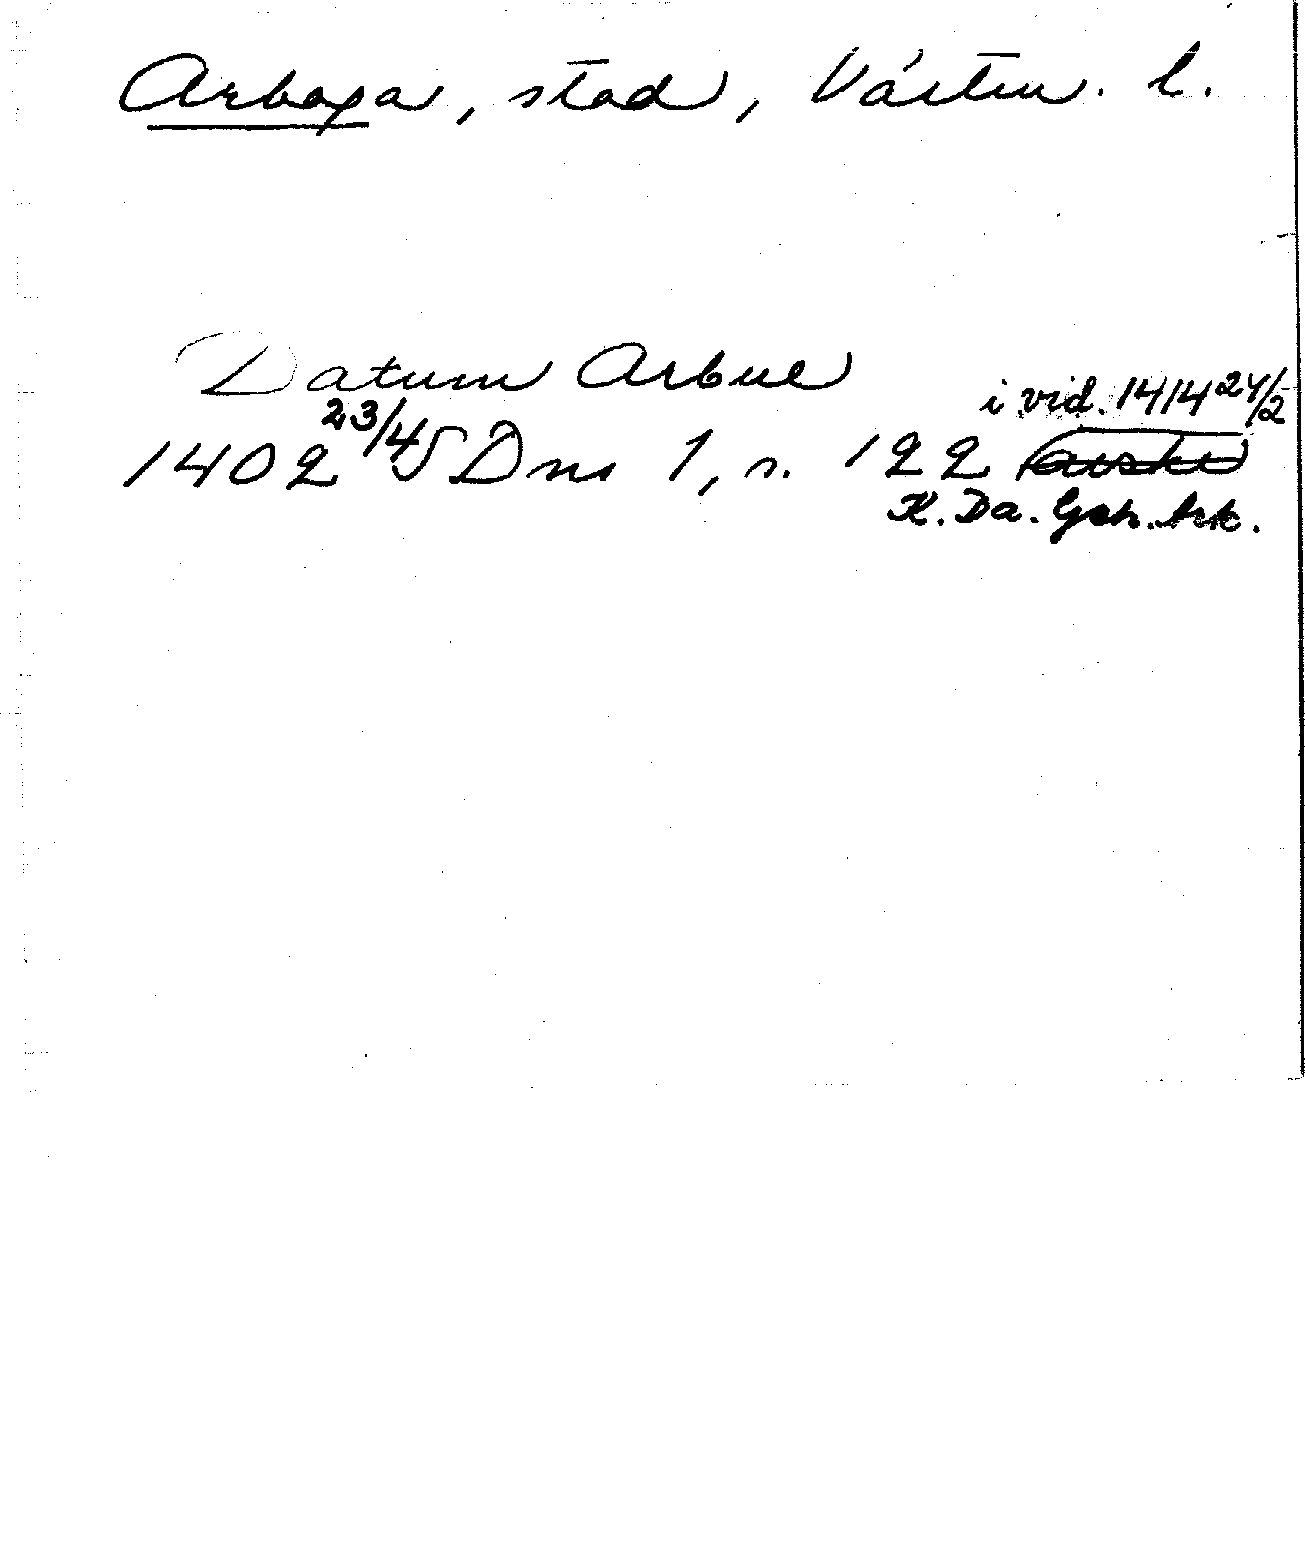 Arboga, stad, Västm. l.
Datum Arbue
i vid. 1414 24/2
1402 23/4 SDns 1, s. 122 (avskr)
K. Da. Geh. Ark.